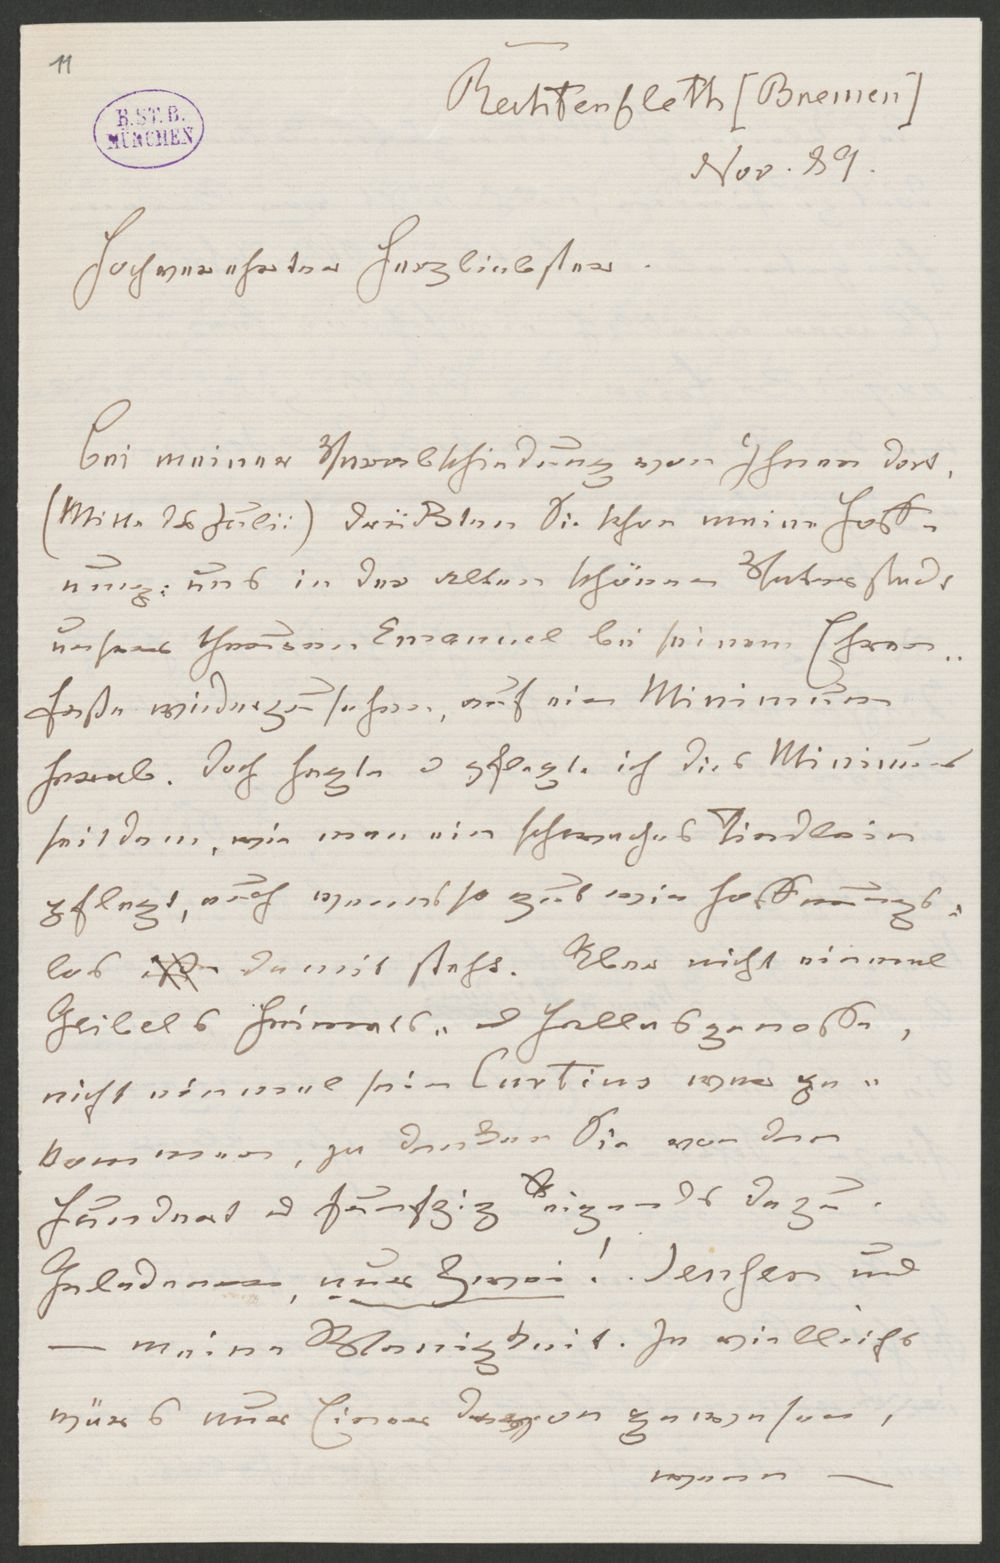 11
B.ST.B.
MÜNCHEN
Rechtenfleth [Bremen]
Nov. 89.
Hochverehrter Herzliebster.
Bei meiner Verabschiedung von Ihnen dort,
(Mitte des Julii) drückten Sie schon meine Hoff-
nung: uns in der alten schönen Vaterstadt
unseres theuren Emanuel bei seinem Ehren-
feste wiederzusehen, auf ein Minimum
herab. Doch hegte u pflegte ich dies Minimum
seitdem, wie man ein schwaches Kindlein
pflegt, auch wenns so gut wie hoffnungs-
los damit steht. Aber nicht einmal
Geibels Heimats- u Hellasgenosse,
nicht einmal sein Curtius war ge-
kommen, ja denken Sie von den
Hundert u fünfzig eigends dazu
Geladenen, nur Zwei! Jensen und
— meine Wenigkeit. Ja vielleicht
wärs nur Einer davon gewesen,
wenn —